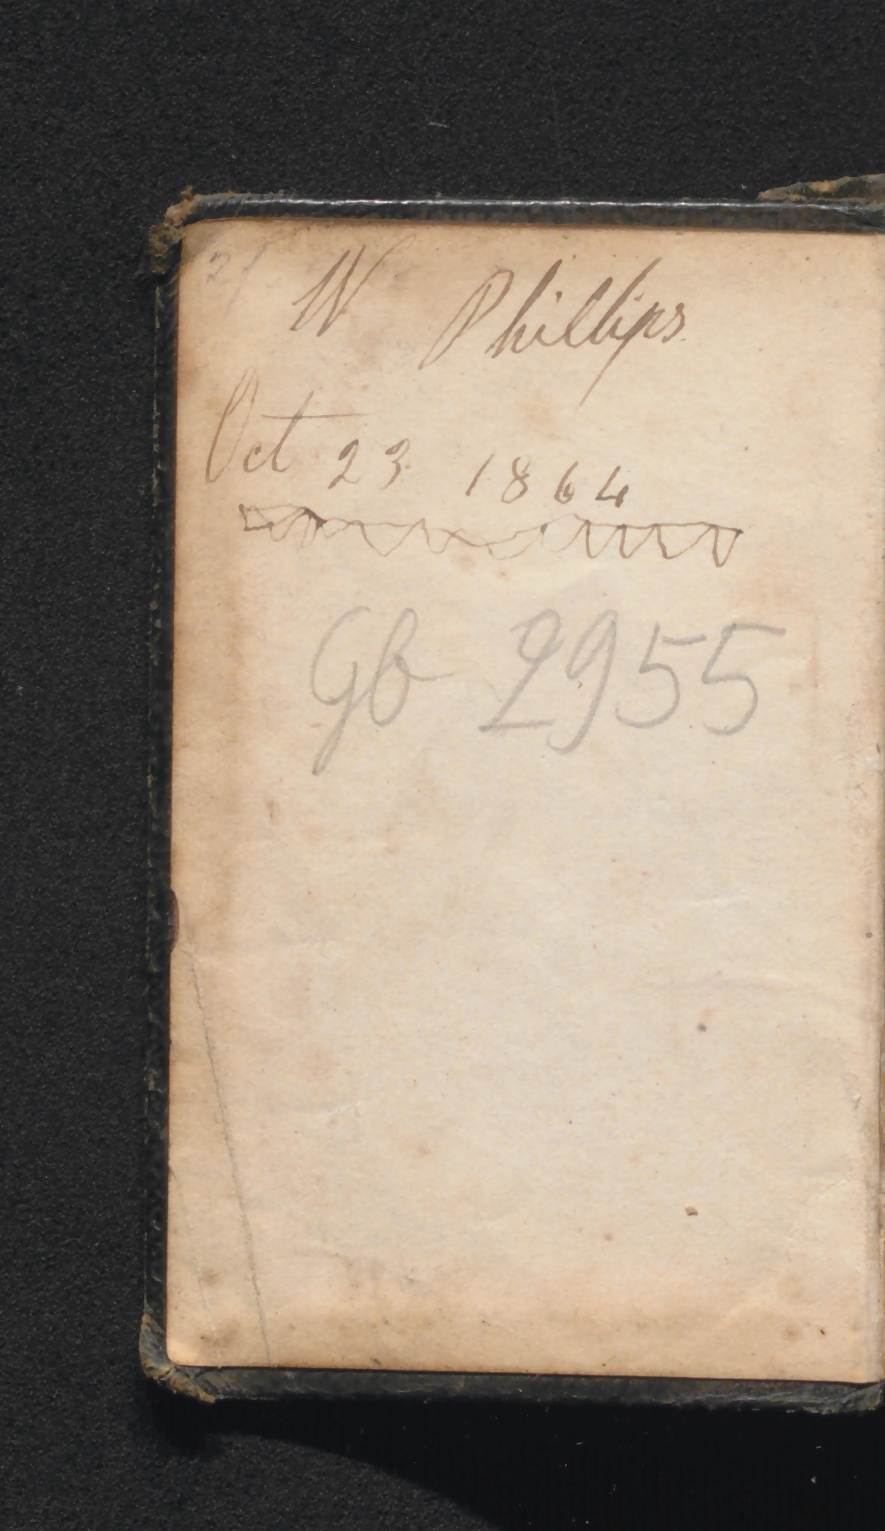 2/
W Phillips
Oct 23 1864
Gb 2955